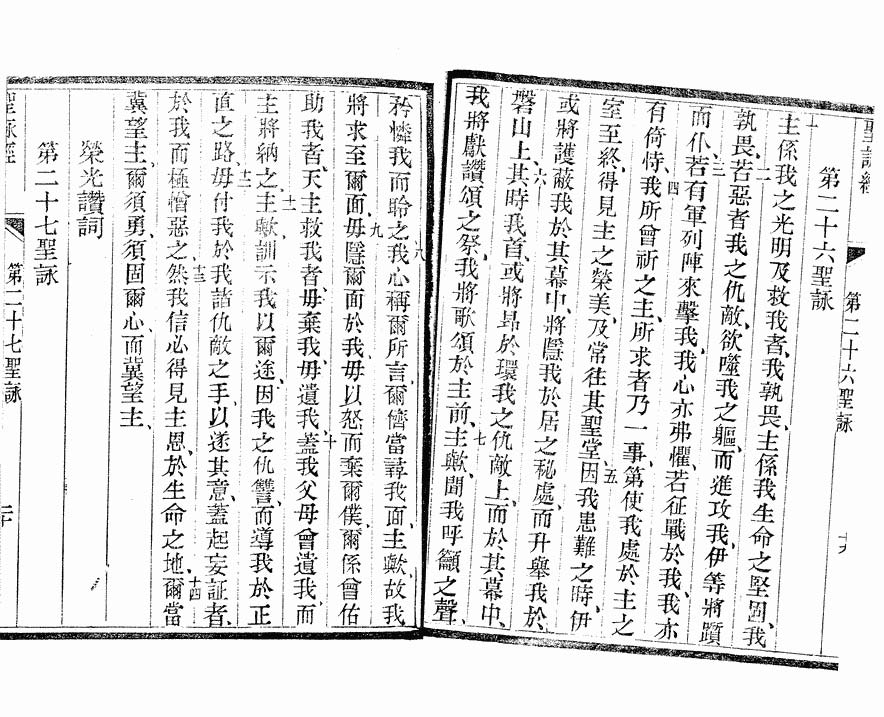 聖詠經 第二十六聖詠 十九
第二十六聖詠
一主係我之光明及救我者、我孰畏、主係我生命之堅固、我
孰畏、二若惡者我之仇敵、欲噬我之軀、而進攻我、伊等將躓
而仆、三若有軍列陣來擊我、我心亦弗懼、若征戰於我、我亦
有倚恃、四我所曾祈之主、所求者乃一事、第使我處於主之
室至終、得見主之榮美、及常往其聖堂、五因我患難之時、伊
或將護蔽我於其幕中、將隱我於居之秘處、而升舉我於
磐山上、六其時我首、或將昂於環我之仇敵上、而於其幕中、
我將獻讚頌之祭、我將歌頌於主前、七主歟、聞我呼籲之聲、
矜憐我而聆之、八我心稱爾所言、爾儕當尋我面、主歟、故我
將求至爾面、九毋隱爾面於我、毋以怒而棄爾僕、爾係曾佑
助我者、天主救我者、毋棄我、毋遺我、十蓋我父母曾遺我、而
主將納之、十一主歟、訓示我以爾途、因我之仇讐、而導我於正
直之路、十二毋付我於我諸仇敵之手、以遂其意、蓋起妄証者、
於我而極憎惡之、十三然我信必得見主恩、於生命之地、十四爾當
冀望主、爾須勇、須固爾心、而冀望主、
榮光讚詞
第二十七聖詠
聖詠經 第二十七聖詠 二十